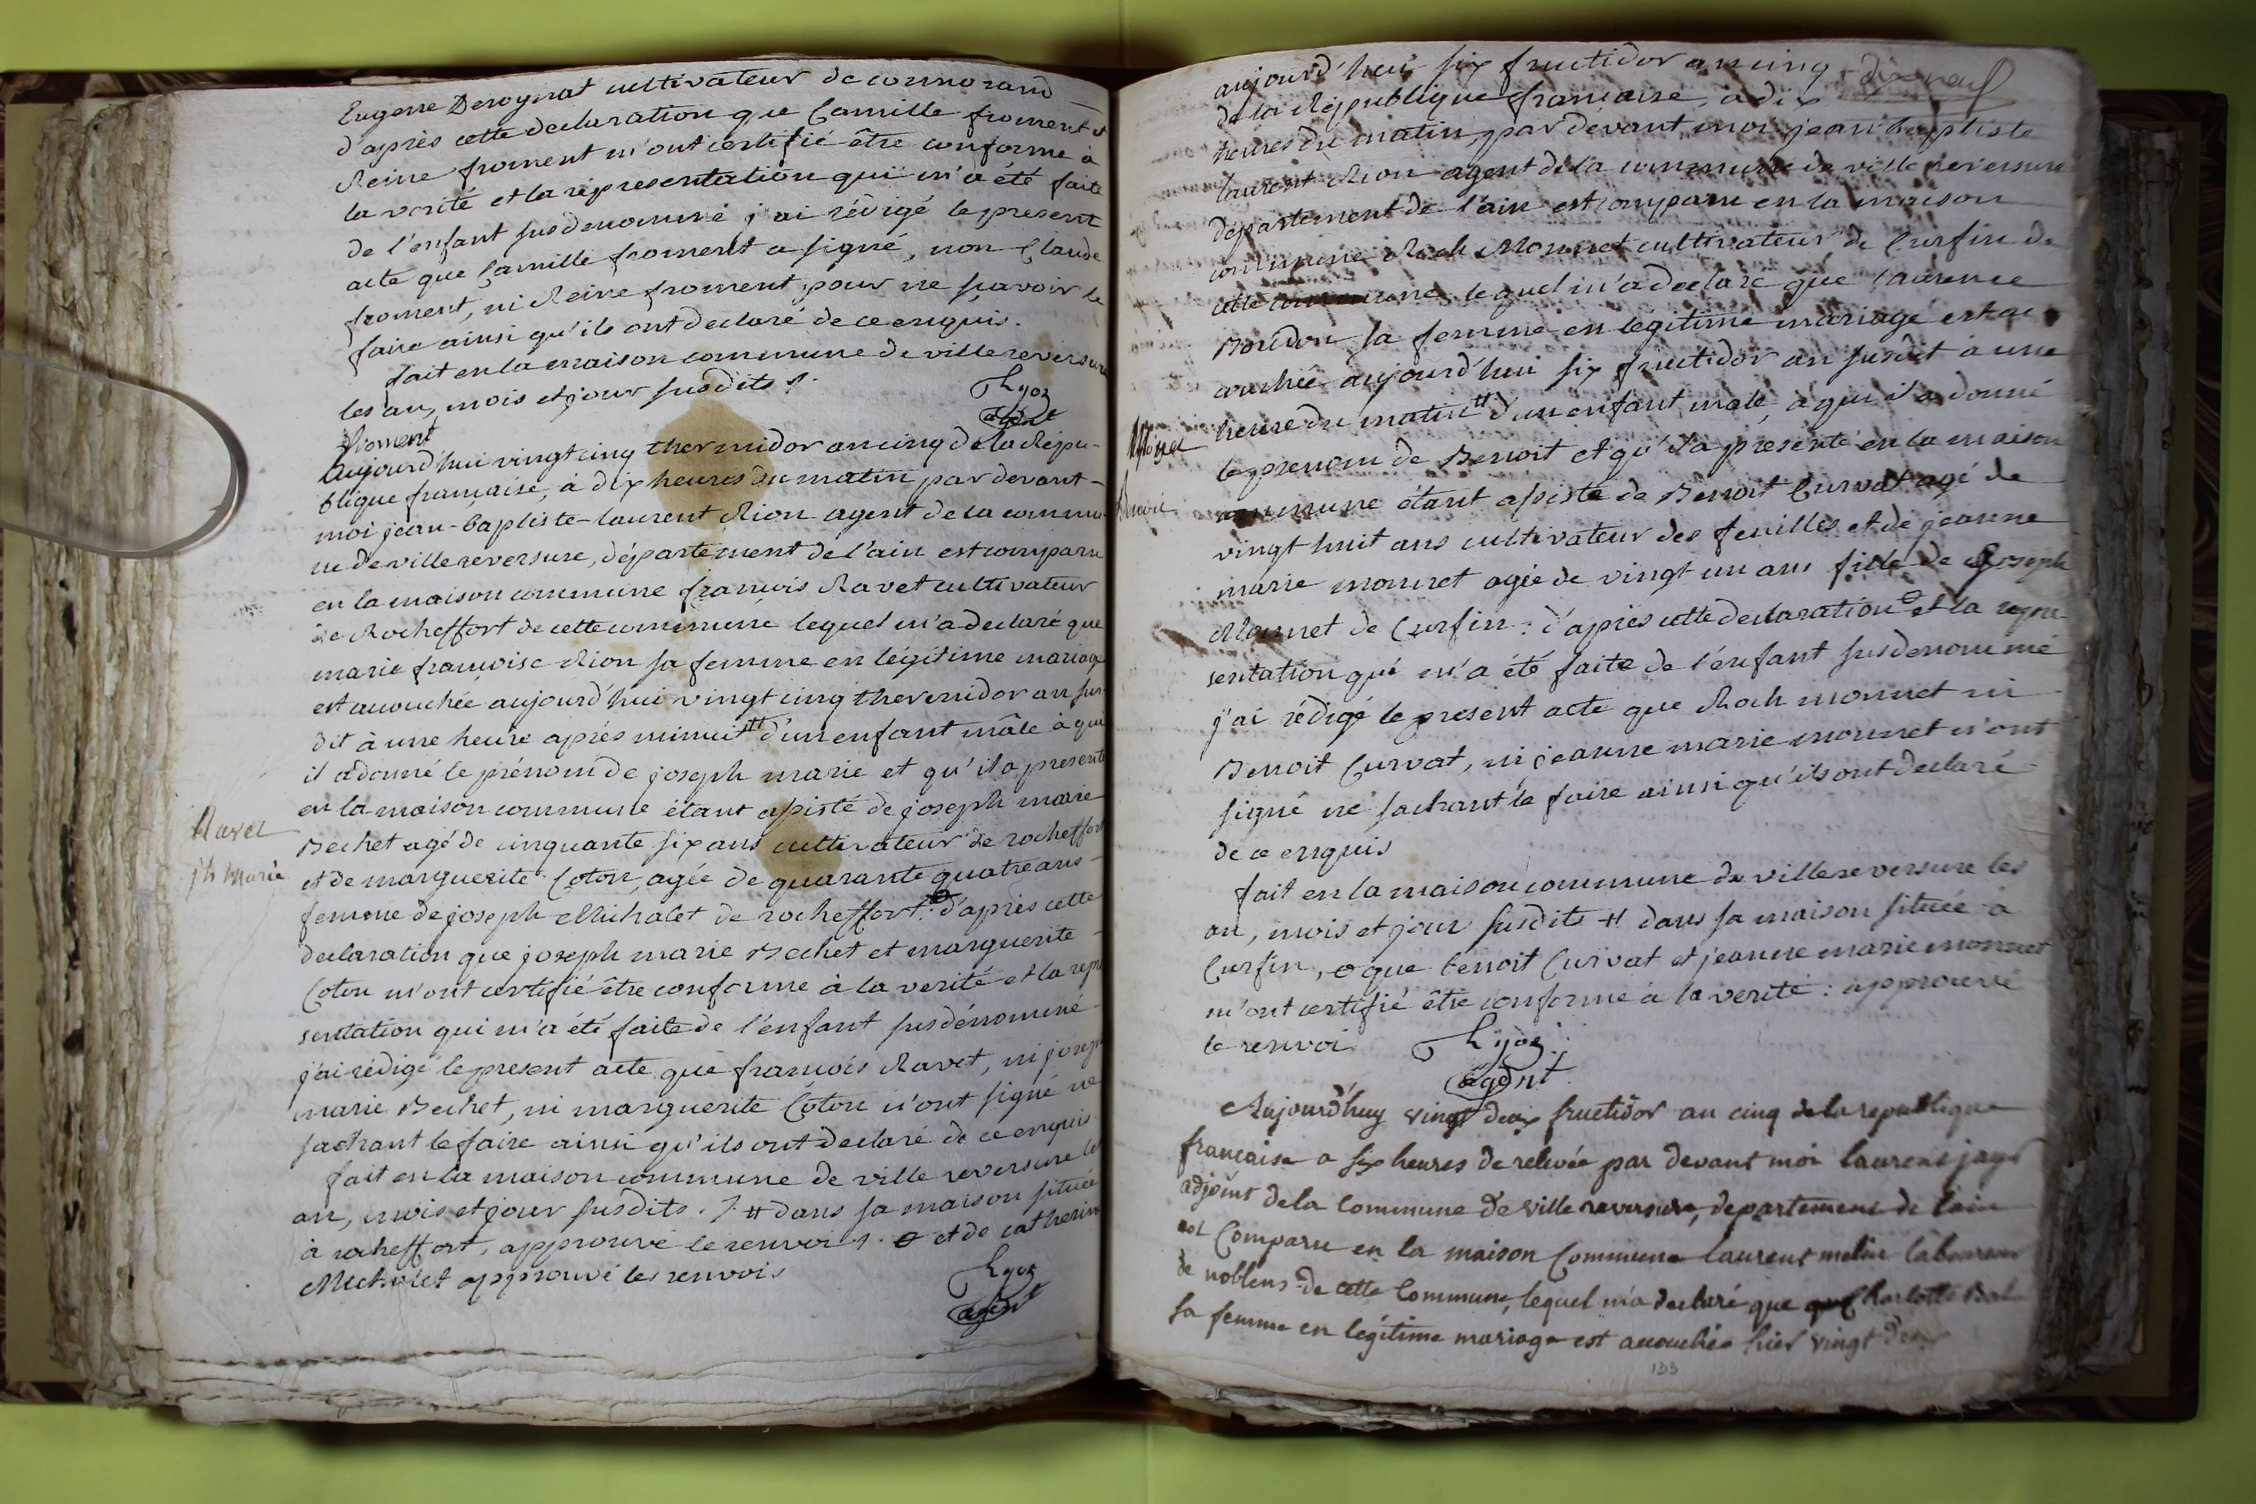 Eugene Deroynat cultivateur de cormorand
d'après cette declaration que Camille froment et
Reine froment m'ont certifié être conforme à
la verité et la représentation qui m'a été faite
de l'enfant susdenommé j'ai rédigé le present
acte que Camille froment a signé, non Claude
froment, ni Reine froment, pour ne sçavoir le
faire ainsi qu'ils ont declaré de ce enquis.
fait en la maison commune de ville reversure
les an, mois et jour susdits
Ryon
agent
froment
Aujourd'hui vingt cinq thermidor an cinq de la Répu-
blique française, à dix heures du matin par devant-
moi jean-baptiste-laurent Rion agent de la commu-
ne de ville reversure, département de l'ain est comparu
en la maison commune françois Ravet cultivateur
de Rocheffort de cette commune lequel m'a declaré que
marie françoise Rion sa femme en légitime mariage
est accouchée aujourd'hui vingt cinq thermidor an sus-
dit à une heure après minuit # d'un enfant mâle à qui
il a donné le prénom de joseph marie et qu'il a presenté
en la maison commune étant assisté de joseph marie
Ravet
jh Marie
Bechet agé de cinquante six ans cultivateur de rocheffort
et de marguerite Coton agée de quarante quatre ans-
femme de joseph Michalet de rocheffort: d'après cette
declaration que joseph marie Bechet et marguerite-
Coton m'ont certifié être conforme à la verité et la repré
sentation qui m'a été faite de l'enfant susdénommé-
j'ai rédigé le present acte que françois Ravet, ni joseph
marie Bechet, ni marguerite Coton n'ont signé ne
sachant le faire ainsi qu'ils ont declaré de ce enquis
fait en la maison commune de ville reversure les
an, mois et jour susdits. # dans sa maison située
à rocheffort, approuvé le renvoi et de catherine
Michalet approuvé les renvois
Ryon
agent
aujourd'hui six fructidor an cinq
de la République française, à dix
heures du matin, par devant moi jean baptiste
laurent Rion agent de la commune de ville reversure
département de l'ain est comparu en la maison
commune Roch Monnet cultivateur de Curfin de
cette commune lequel m'a declaré que laurence
Bondon sa femme en légitime mariage est ac
couchée aujourd'hui six fructidor an susdit à une
heure du matin # d'un enfant male, à qui il a donné
le prenom de Benoit et qu'il a présenté en la maison
commune étant assisté de Benoit Curvat agé de
Benoit
vingt huit ans cultivateur des feuilles et de jeanne
marie monnet agée de vingt un ans fille de Joseph
Monnet de Curfin: d'après cette declaration et la repre-
sentation qui m'a été faite de l'enfant susdenommé
j'ai rédigé le present acte que Roch monnet ni
Benoit Curvat, ni jeanne marie monnet n'ont
signé ne sachant le faire ainsi qu'ils ont declaré-
de ce enquis
fait en la maison commune de ville reversure les
an, mois et jour susdits # dans sa maison située à
Curfin, que benoit Curvat et jeanne marie monnet
m'ont certifié être conforme à la verité: approuvé
le renvoi
Ryon
agent
Aujourd'huy vingt deux fructidor an cinq de la republique
francaise a six heures de relevée par devant moi laurent jayr
adjoint de la Commune de ville reversure, departement de lain
est Comparu en la maison Commune laurent melin laboureur
de noblens de cette Commune, lequel m'a declaré que Charlotte
sa femme en legitime mariage est accouchée hier vingt
133